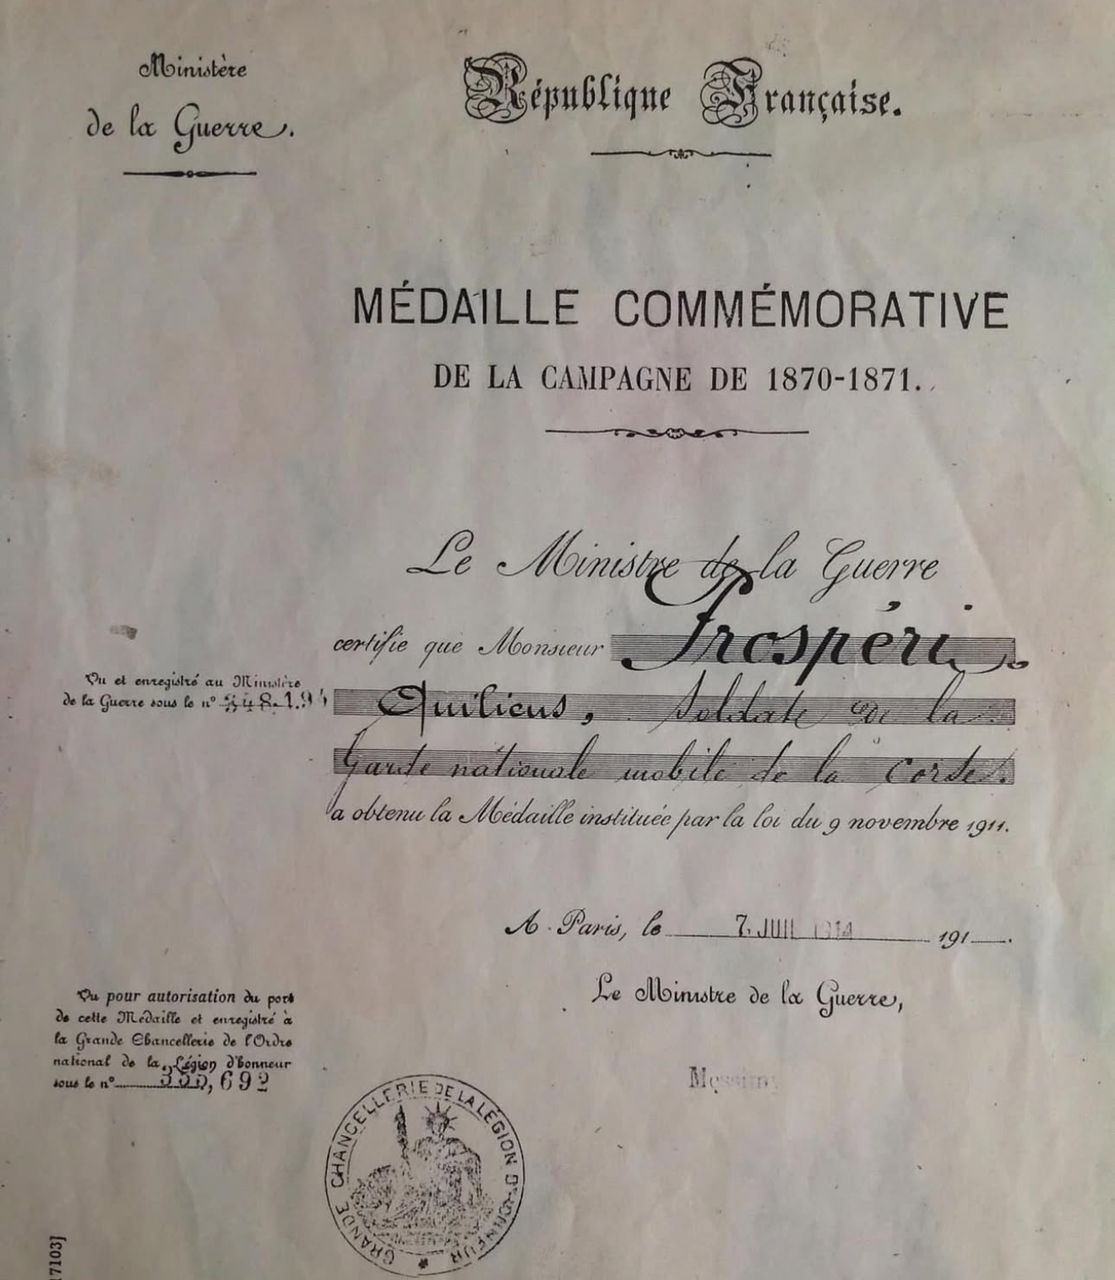 Ministère
de la Guerre.
République Française.
MÉDAILLE COMMÉMORATIVE
DE LA CAMPAGNE DE 1870-1871.
Le Ministre de la Guerre
certifie que Monsieur Prospéri
Quilicus, Soldat de la
Garde nationale mobile de la Corse.
a obtenu la Médaille instituée par la loi du 9 novembre 1911.
Vu et enregistré au Ministère
de la Guerre sous le n°
A Paris, le 7 JUIL 1914 191 .
Le Ministre de la Guerre,
Messimy
Vu pour autorisation du port
de cette Médaille et enregistré à
la Grande Chancellerie de l'Ordre
national de la Légion d'honneur
sous le n°
GRANDE CHANCELLERIE DE LA LÉGION D'HONNEUR
7103]